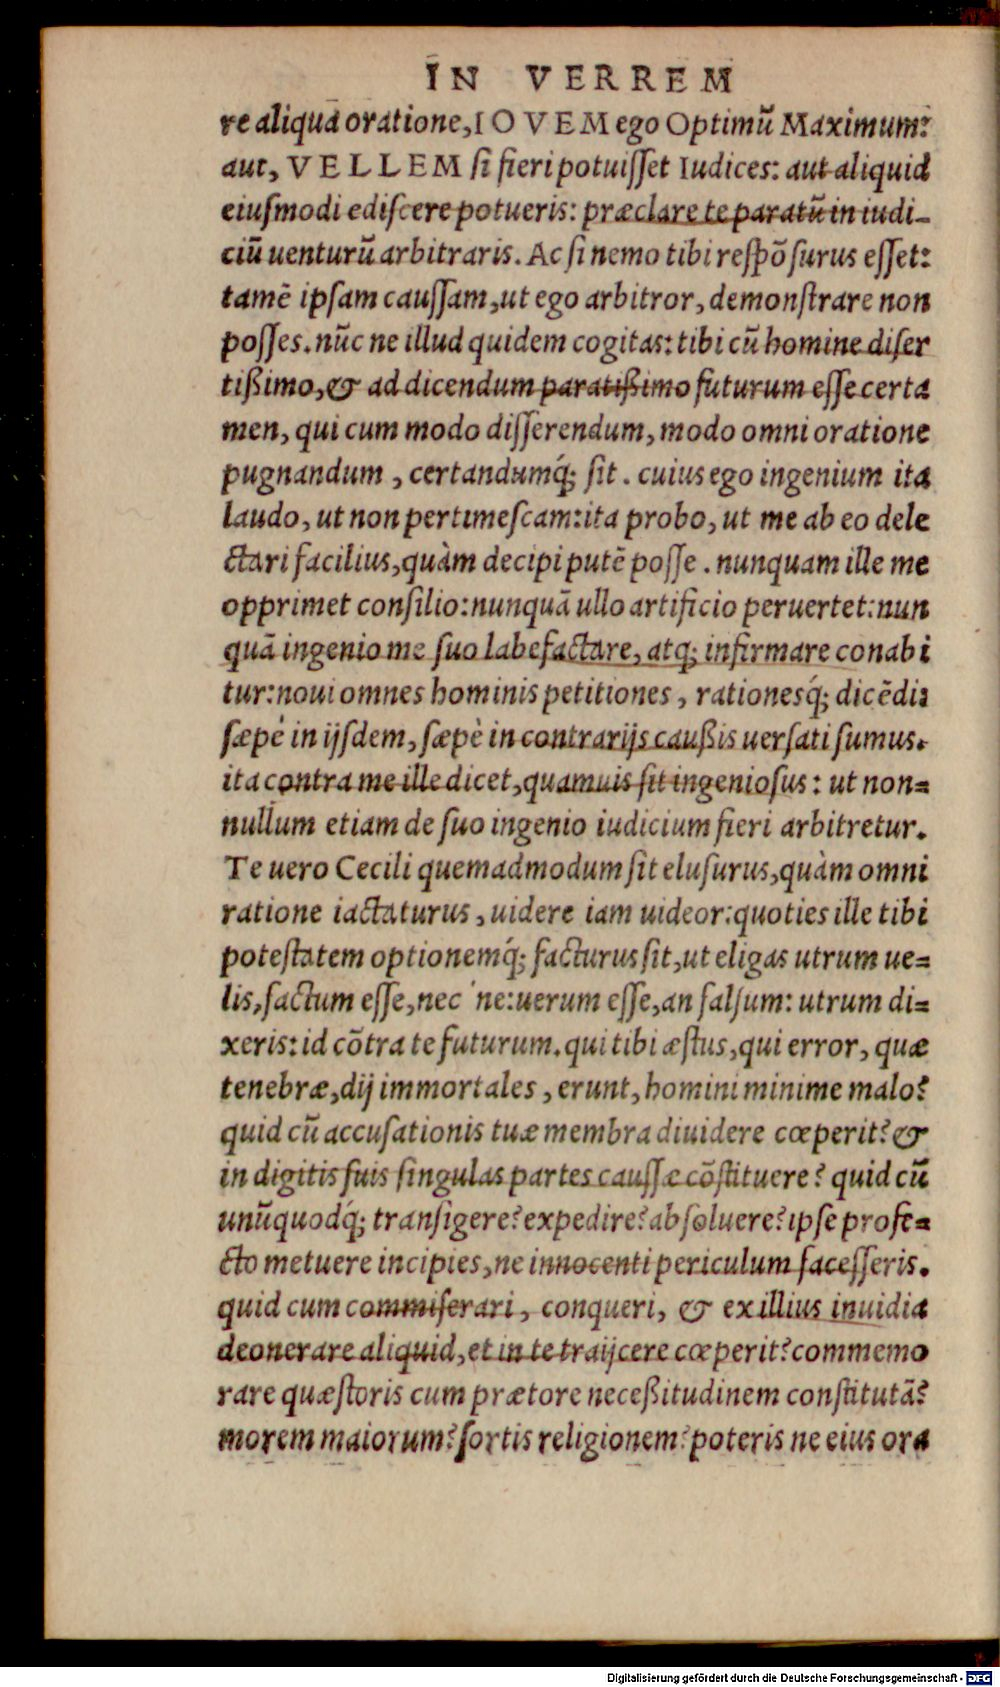 IN VERREM
re aliqua oratione, IOVEM ego Optimũ Maximum?
aut, VELLEM si fieri potuisset Iudices: aut aliquid
eiusmodi ediscere potueris: præclare te paratũ in iudi-
ciũ uenturũ arbitraris. Ac si nemo tibi respõsurus esset:
tamẽ ipsam caussam, ut ego arbitror, demonstrare non
posses. nũc ne illud quidem cogitas: tibi cũ homine diser
tißimo, & ad dicendum paratißimo futurum esse certa
men, qui cum modo disserendum, modo omni oratione
pugnandum, certandumq́; sit. cuius ego ingenium ita
laudo, ut non pertimescam: ita probo, ut me ab eo dele
ctari facilius, quàm decipi putẽ posse. nunquam ille me
opprimet consilio: nunquã ullo artificio peruertet: nun
quã ingenio me suo labefactare, atq; infirmare conabi
tur: noui omnes hominis petitiones, rationesq́; dicẽdi:
sæpè in ijsdem, sæpè in contrarijs caußis uersati sumus.
ita contra me ille dicet, quamuis sit ingeniosus: ut non=
nullum etiam de suo ingenio iudicium fieri arbitretur.
Te uero Cecili quemadmodum sit elusurus, quàm omni
ratione iactaturus, uidere iam uideor: quoties ille tibi
potestatem optionemq́; facturus sit, ut eligas utrum ue=
lis, factum esse, nec ne: uerum esse, an falsum: utrum di=
xeris: id cõtra te futurum. qui tibi æstus, qui error, quæ
tenebræ, dij immortales, erunt, homini minime malo?
quid cũ accusationis tuæ membra diuidere cœperit? &
in digitis suis singulas partes caussæ cõstituere? quid cũ
unũquodq́; transigere? expedire? absoluere? ipse profe=
cto metuere incipies, ne innocenti periculum facesseris.
quid cum commiserari, conqueri, & ex illius inuidia
deonerare aliquid, et in te traijcere cœperit? commemo
rare quæstoris cum prætore neceßitudinem constitutã?
morem maiorum? sortis religionem? poteris ne eius ora
Digitalisierung gefördert durch die Deutsche Forschungsgemeinschaft - DFG